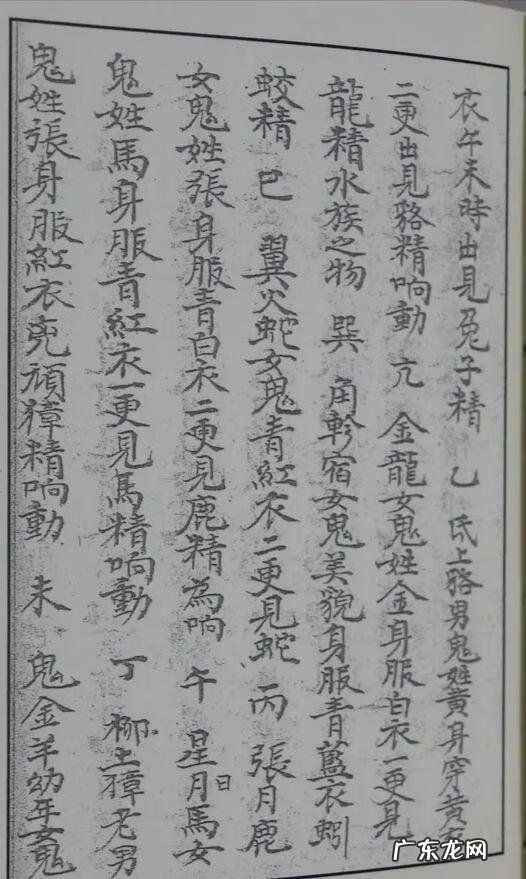 衣午未時出見兔子精　乙　氐上貉男鬼姓黄身穿黄衣
二更出見貉精响動　亢　金龍女鬼姓金身服白衣一更見
龍精水族之物　巽　角軫宿女鬼美貌身服青藍衣蚓
蛟精　巳　翼火蛇女鬼青紅衣二更見蛇　丙　張月鹿
女鬼姓張身服青白衣二更見鹿精為响　午　星月日馬女
鬼姓馬身服青紅衣一更見馬精响動　丁　柳土獐老男
鬼姓張身服紅衣兇頑獐精响動　未　鬼金羊幼年女鬼
广东龙网